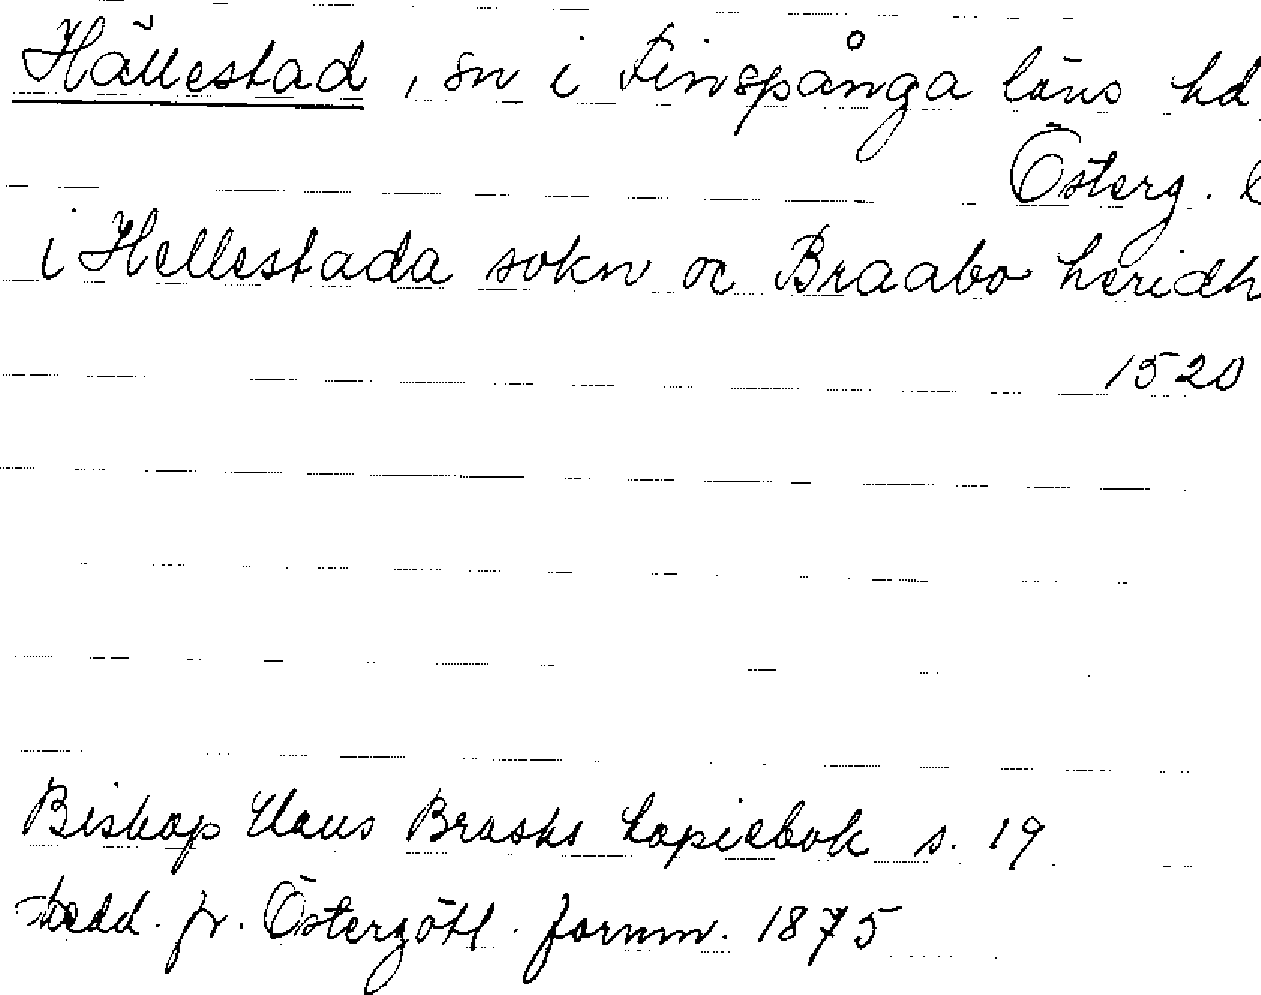 Hällestad, sn i Finspånga läns hd
Österg. l
i Hellestada sokn oc Braabo heridh
1520
Biskop Hans Brasks kopiebok s. 19
Medd. fr. Östergötl. fornm. 1875